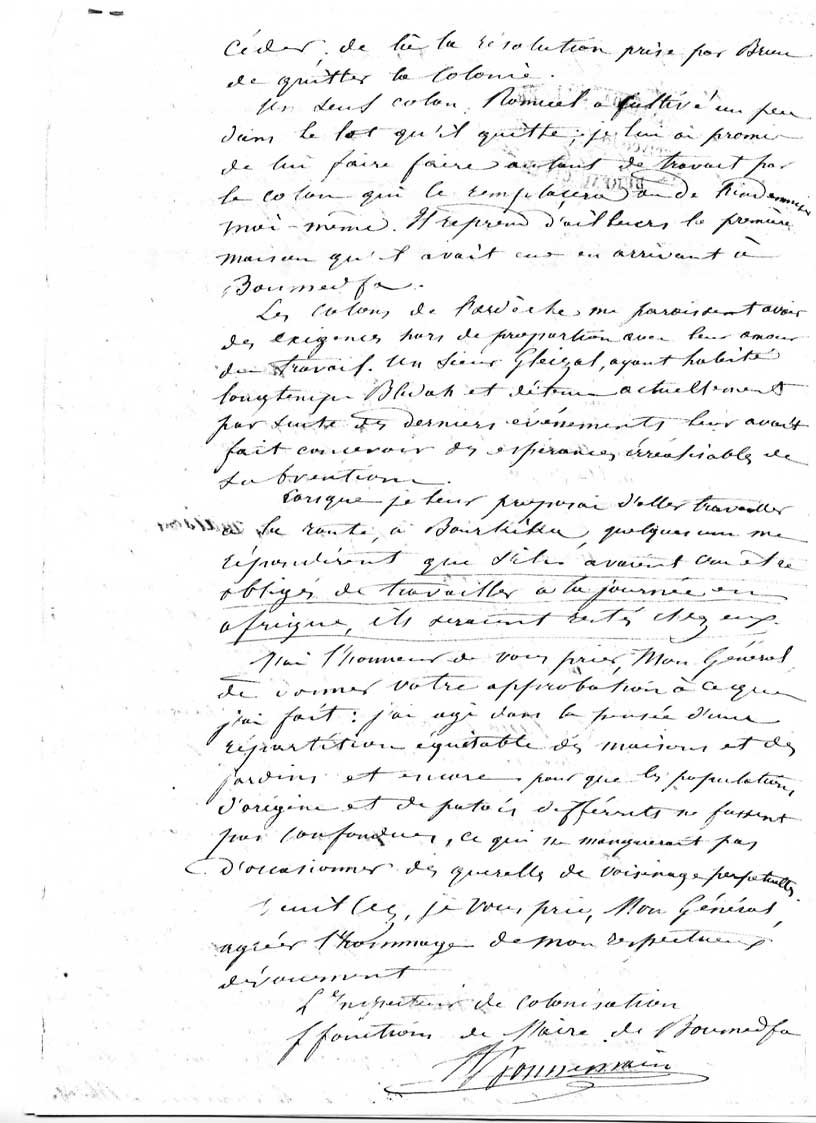 céder. de là la résolution prise par Brun
de quitter la Colonie.
Un seul colon, Romuel a cultivé un peu
dans le lot qu'il quitte ; je lui ai promis
de lui faire faire autant de travail par
le colon qui le remplacera ou de l'indemniser
moi-même. Il reprend d'ailleurs la première
maison qu'il avait eue en arrivant à
Boumedfa.
Les colons de l'ardèche me paraissent avoir
des exigences hors de proportion avec leur amour
du travail. Un sieur Gleizal, ayant habité
longtemps Blidah et détenu actuellement
par suite des derniers événements leur avait
fait concevoir des espérances irréalisables de
subventions.
Lorsque je leur proposai d'aller travailler
à la route, à Bourkika, quelques uns me
répondirent que s'ils avaient cru etre
obligés de travailler à la journée en
afrique, ils seraient restés chez eux.
J'ai l'honneur de vous prier, Mon Général,
de donner votre approbation à ce que
j'ai fait : j'ai agi dans la pensée d'une
répartition équitable des maisons et des
jardins et encore pour que les populations
d'origine et de patois différents ne fussent
pas confondues, ce qui ne manquerait pas
d'occasionner des querelles de voisinage perpétuelles.
Veuillez, je vous prie, Mon Général,
agréer l'hommage de mon respectueux
dévouement
L'Inspecteur de colonisation
ffonctions de Maire de Boumedfa